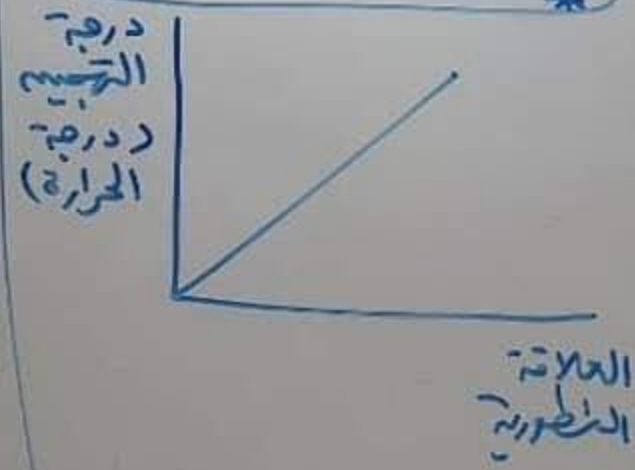 درجة
التهجين
(درجة
الحرارة)
العلاقة
التطورية